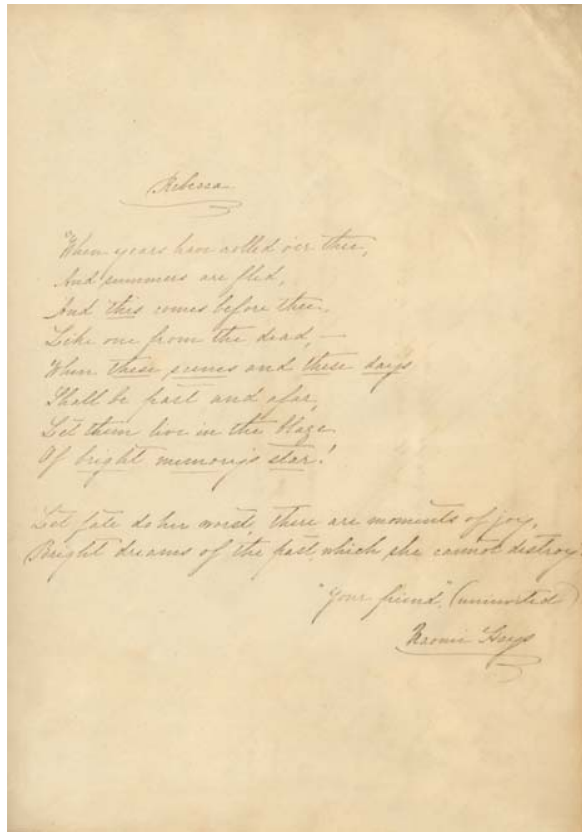 Rebecca
When years have rolled o'er thee,
And summers are fled,
And this comes before thee,
Like one from the dead, —
When these scenes and these days
Shall be past and afar,
Let them live in the blaze
Of bright memory's star!
Let fate do her worst, there are moments of joy,
Bright dreams of the past, which she cannot destroy.
"Your friend," (uninvited)
Naomi Hays